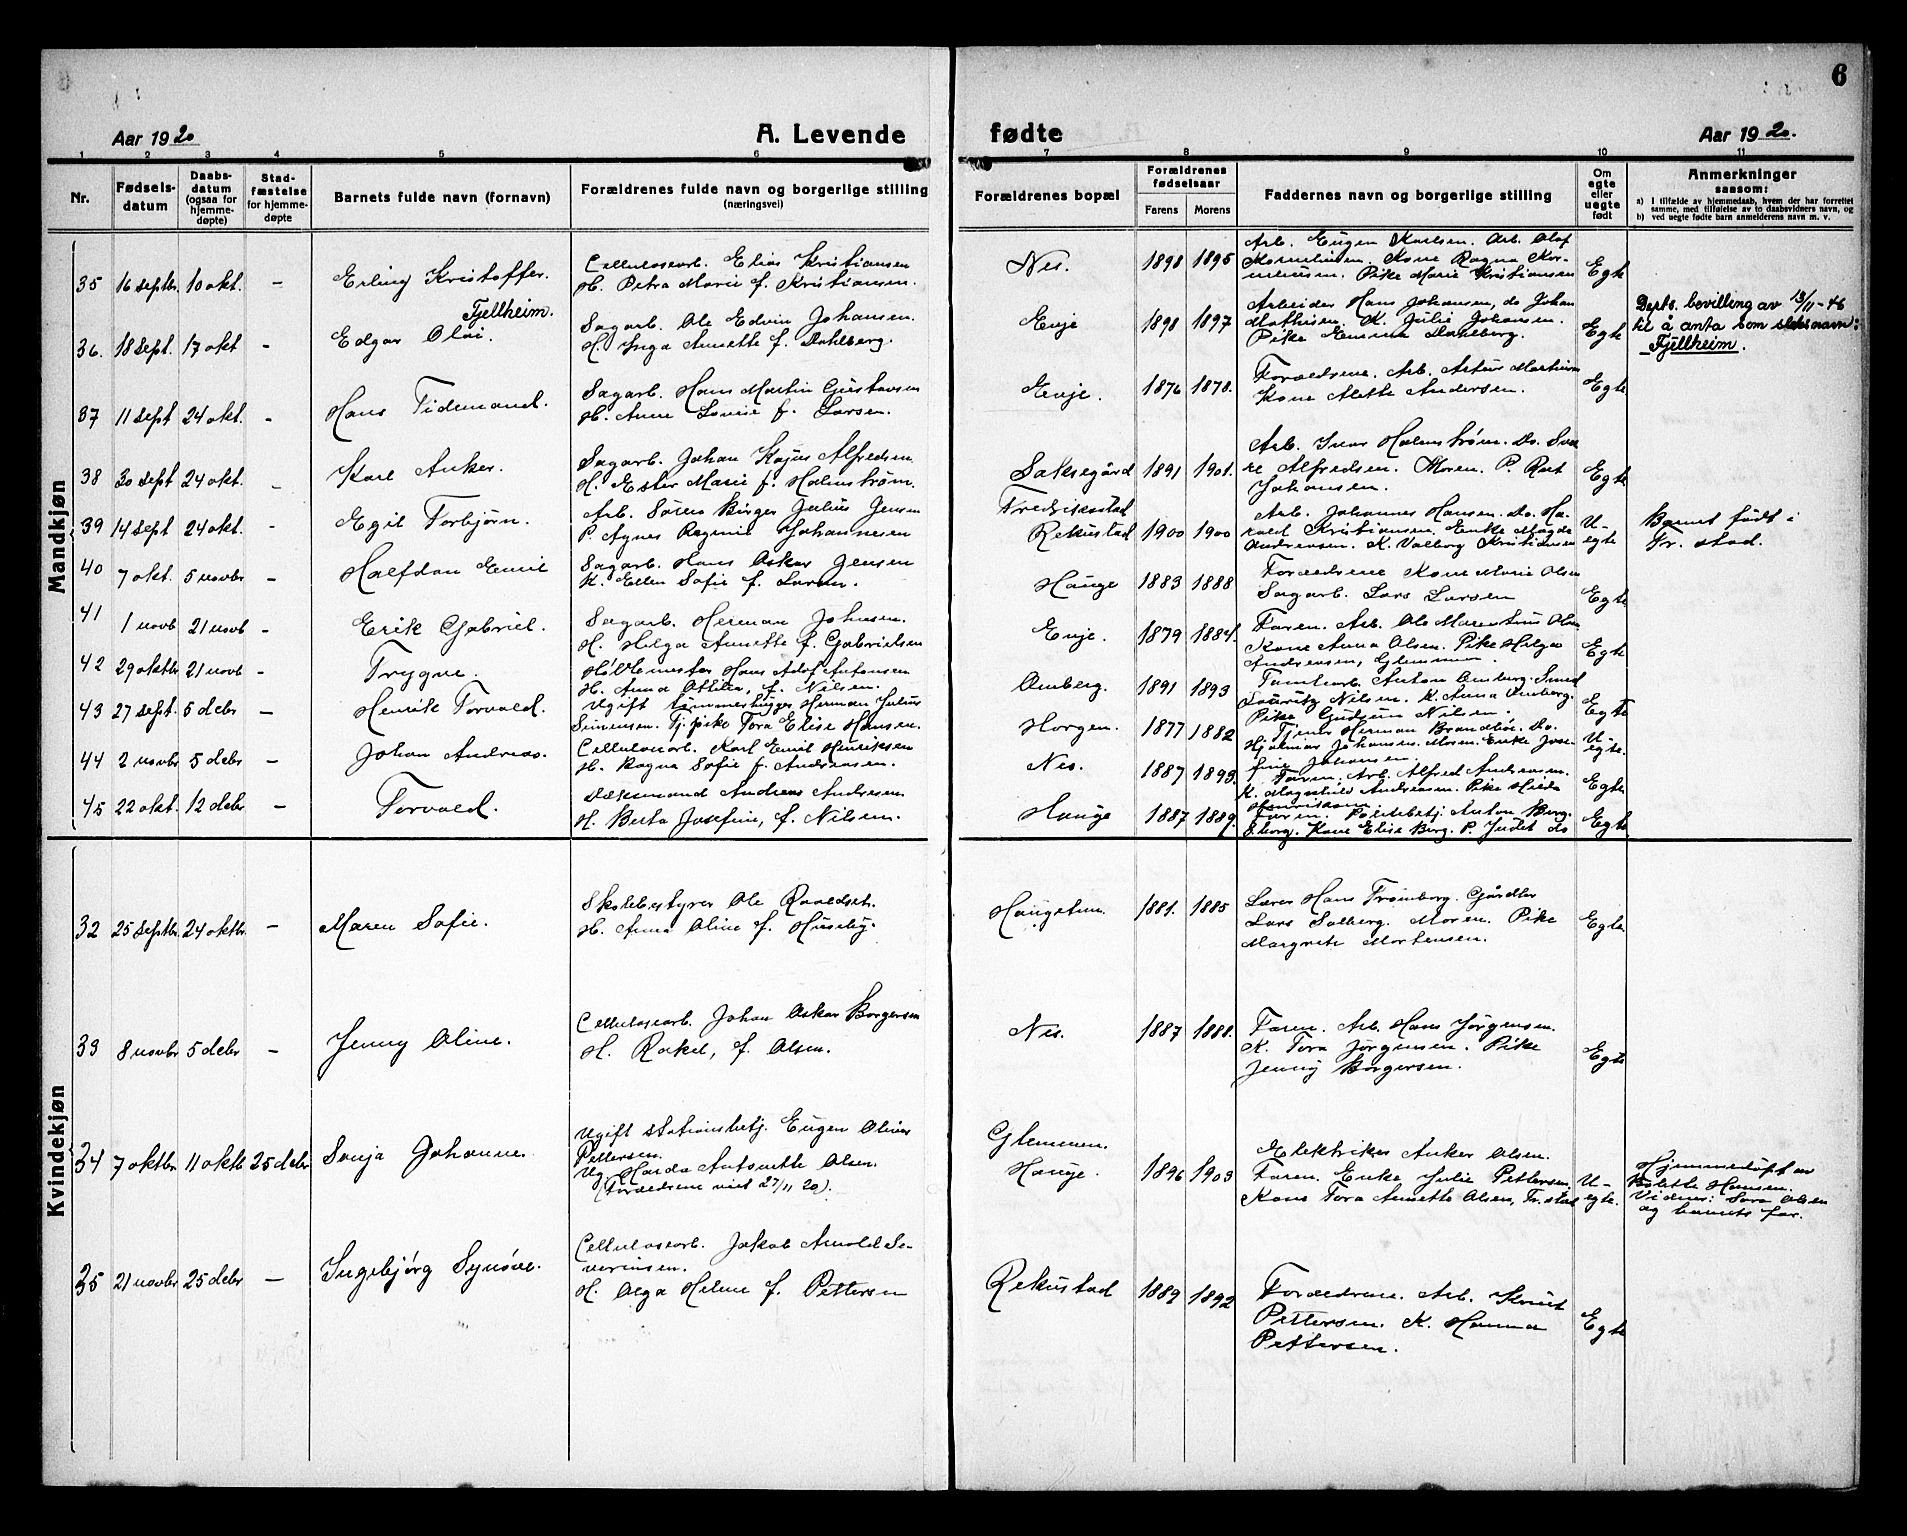 6
Aar 1920
A. Levende
fødte
Aar 1920.
1 2 3 4 5 6 7 8 9 10 11
Nr.
Fødsels-
datum
Daabs-
datum
(ogsaa for
hjemme-
døpte)
Stad-
fæstelse
for hjemme-
døpte
Barnets fulde navn (fornavn)
Forældrenes fulde navn og borgerlige stilling
(næringsvei)
Forældrenes bopæl
Forældrenes
fødselsaar
Farens Morens
Faddernes navn og borgerlige stilling
Om
egte
eller
uegte
født
Anmerkninger
saasom:
a) I tilfælde av hjemmedaab, hvem der har forrettet
samme, med tilføielse av to daabsvidners navn, og
b) ved uegte fødte barn anmelderens navn m. v.
Mandkjøn
35 16 septbr 10 okt. - Erling Kristoffer.
Cellulosearb. Elias Kristiansen
H. Petra Marie f. Kristiansen.
Nes. 1898 1895
Arb. Eugen Karlsen. Arb. Olaf
Kornelius­en. Kone Ragna Kor-
neliusen. Pike Marie Kristiansen
Egte
36. 18 sept. 17 okt - Edgar Olai.
Fjellheim.
Sagarb. Ole Edvin Johansen.
H. Inga Annette f. Dahlberg.
Evje 1898 1897
Arbeider Hans Johansen, do Johan
Mathisen. K. Julie Johansen.
Pike Emma Dahlberg.
Egte
Depts. bevilling av 13/11-46
til å anta som slektsnavn:
Fjellheim.
37 11 sept 24 okt. - Hans Tidemand.
Sagarb. Hans Martin Gustavsen
H. Anne Lovise f. Larsen.
Evje. 1876 1878.
Forældrene. Arb. Artur Martinsen
Kone Alette Andersen.
Egte
38 30 sept 24 okt. - Karl Anker.
Sagarb. Johan Kajus Alfredsen
H. Ester Marie f. Holmstrøm.
Saksegård 1891 1901.
Arb. Ivar Holmstrøm. Do. Sva
re Alfredsen. Moren. P. Rut
Johansen.
Egte
39 14 sept 24 okt. - Egil Torbjørn.
Arb. Søren Birger Julius Jensen
P. Agnes Ragnvi Johannesen
Fredriksstad
Rekustad 1900 1900
Arb. Johannes Hansen. Do. Ha-
rald Kristiansen. Enke Magda
Andreasen. K. Valborg Kristiansen
U-
egte
Barnet født i
Fr. stad.
40 7 okt. 5 novbr - Halfdan Emil
Sagarb. Hans Oskar Jensen
K. Ellen Sofie f. Larsen.
Hauge 1883 1888
Forældrene Kone Marie Olsen
Sagarb. Lars Larsen
Egte
41 1 novb 21 novb - Erik Gabriel.
Sagarb. Herman Johnsen.
H. Helga Annette f. Gabrielsen
Evje. 1879 1884.
Faren. Arb. Ole Olsen
Kone Anna Olsen. Pike Helga
Andreasen, Glemmen.
Egte
42 29 oktbr 21 novb - Trygve.
Hans Adolf Antonsen
H. Anna Othilie, f. Nilsen.
Omberg. 1891 1893
Tomtearb. Anton Omberg. Smed
Lauritz Nilsen. K. Anna Omberg.
Pike Gudrun Nilsen.
Egte
43 27 sept. 5 debr - Henrik Torvald.
Ugift tømmerhugger Herman Julius
Simensen. Tj. pike Tora Elise Hansen.
Horgen. 1877 1882
Tjener Herman Brandbøe. Do.
Hjalmar Johansen. Moren. Enke Jose-
fine Johansen.
U-
egte.
44 2 novbr 5 debr - Johan Andreas.
Cellulosearb. Karl Emil Henriksen
H. Ragna Sofie f. Andreasen.
Nes. 1887 1893.
Faren. Arb. Alfred Andreasen.
K. Magnhild Andreasen. Pike Hilda
Henriksen.
Egte
45 22 okt. 12 debr - Torvald.
Dæksmand Andreas Andresen
H. Berta Josefine, f. Nilsen.
Hauge 1887 1889.
Faren. Politibetj. Anton Borg.
Eborg. Kone Elise Borg. P. Judet do
Egte
Kvindekjøn
32 25 septbr. 24 oktbr. - Maren Sofie.
Skolebestyrer Ole Ravedset.
H. Anna Oline f. Huseby.
Haugetun. 1881. 1885
Lærer Hans Tromborg. Gårdbr
Lars Solberg. Moren. Pike
Margrete Mortensen.
Egte
33 8 novbr 5 debr - Jenny Oline.
Cellulosearb. Johan Oskar Borgersen
H. Rakel, f. Olsen.
Nes. 1887 1888.
Faren. Arb. Hans Jørgensen.
K. Tora Jørgensen. Pike
Jenny Borgersen.
Egte
34 7 oktbr. 11 oktb 25 debr Sonja Johanne
Ugift stationsbetj. Eugen Oliver
Pettersen.
Ug. Harda Antonette Olsen.
(Forældrene viet 27/11 20).
Glemmen.
Hauge. 1896 1903
Elektriker Anker Olsen.
Faren. Enke Julie Pettersen,
Kone Tora Annette Olsen, Fr. stad
U-
egte.
Hjemmedøpt av
Bolette Hansen.
Vidner: Sara Olsen
og barnets far.
35 21 novbr 25 debr - Ingebjørg Synøve.
Cellulosearb. Jakob Arnold Se-
verinsen.
H. Olga Helene f. Pettersen
Rekustad 1889 1892
Forældrene. Arb. Knut
Pettersen. K. Hanna
Pettersen.
Egte